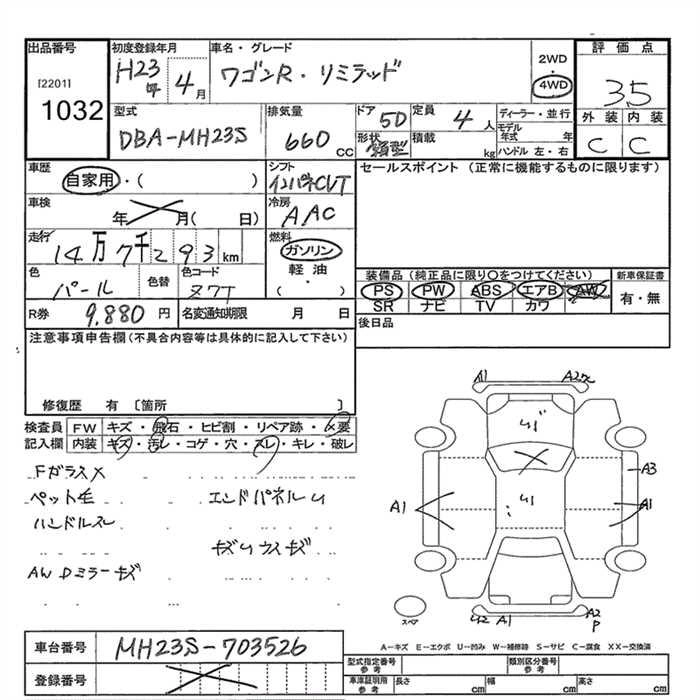 出品番号
[2201]
1032
初度登録年月
H23年4月
車名・グレード
ワゴンR・リミテッド
2WD
4WD
評価点
3.5
外装 内装
C C
型式
DBA-MH23S
排気量
660 CC
ドア 5D
定員 4人
形状
積載 kg
ディーラー・並行
モデル年式 年
ハンドル 左・右
車歴
自家用・( )
シフト
インパネCVT
セールスポイント (正常に機能するものに限ります)
車検
年 月( 日)
冷房
AAC
走行
14万7千293km
燃料
ガソリン
軽油
( )
色
パール
色替
色コード
装備品(純正品に限り○をつけてください)
新車保証書
PS PW ABS エアB AW
SR ナビ TV カワ
有・無
R券 9,880円
名変通知期限 月 日
後日品
注意事項申告欄(不具合内容等は具体的に記入して下さい)
修復歴 有 [箇所 ]
検査員記入欄
FW キズ・飛石・ヒビ割・リペア跡・×要
内装 キズ・汚レ・コゲ・穴・スレ・キレ・破レ
Fガラス X
ペット毛
エンドパネルU
ハンドルスレ
キズU ウスキズ
AW Dミラーキズ
A1
A3
A1
A1
U1
U1
U2 A1
A2
P
スペア
A-キズ E-エクボ U-凹み W-補修跡 S-サビ C-腐食 XX-交換済
車台番号 MH23S-703526
登録番号
型式指定番号 参考
類別区分番号 参考
車庫証明用 参考 長さ cm 幅 cm 高さ cm